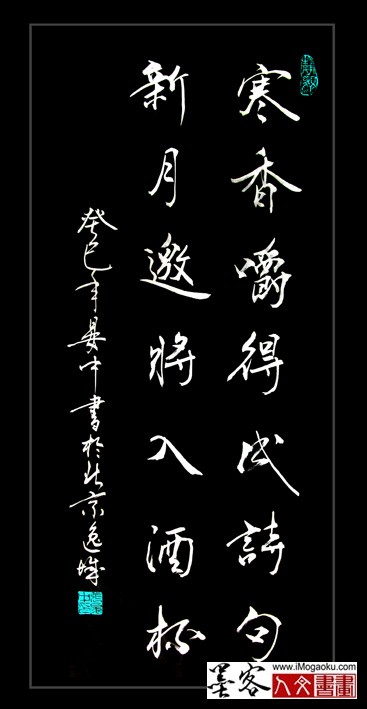 寒香嚼得成詩句
新月邀將入酒杯
癸巳年中書於北京逸城
www.iMogaoku.com
墨客 人文書畫